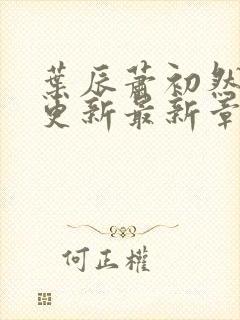 葉辰蕭初然
更新最新章
何正權